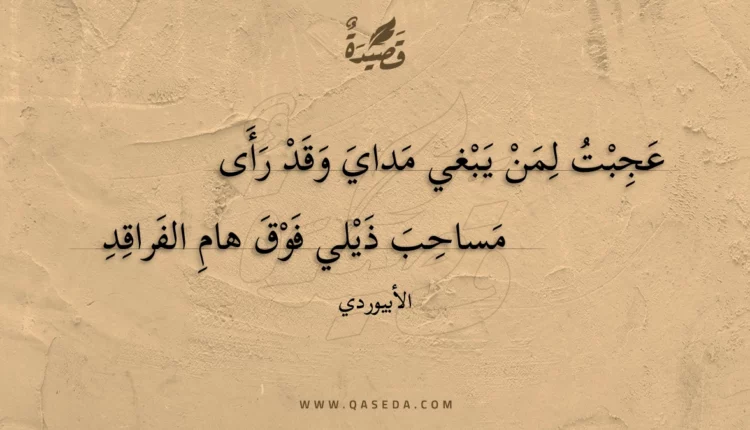 قَصِيدَةٌ
عَجِبْتُ لِمَنْ يَبْغي مَدايَ وَقَدْ رَأَى
مَساحِبَ ذَيْلي فَوْقَ هامِ الفَراقِدِ
الأبيوردي
WWW.QASEDA.COM